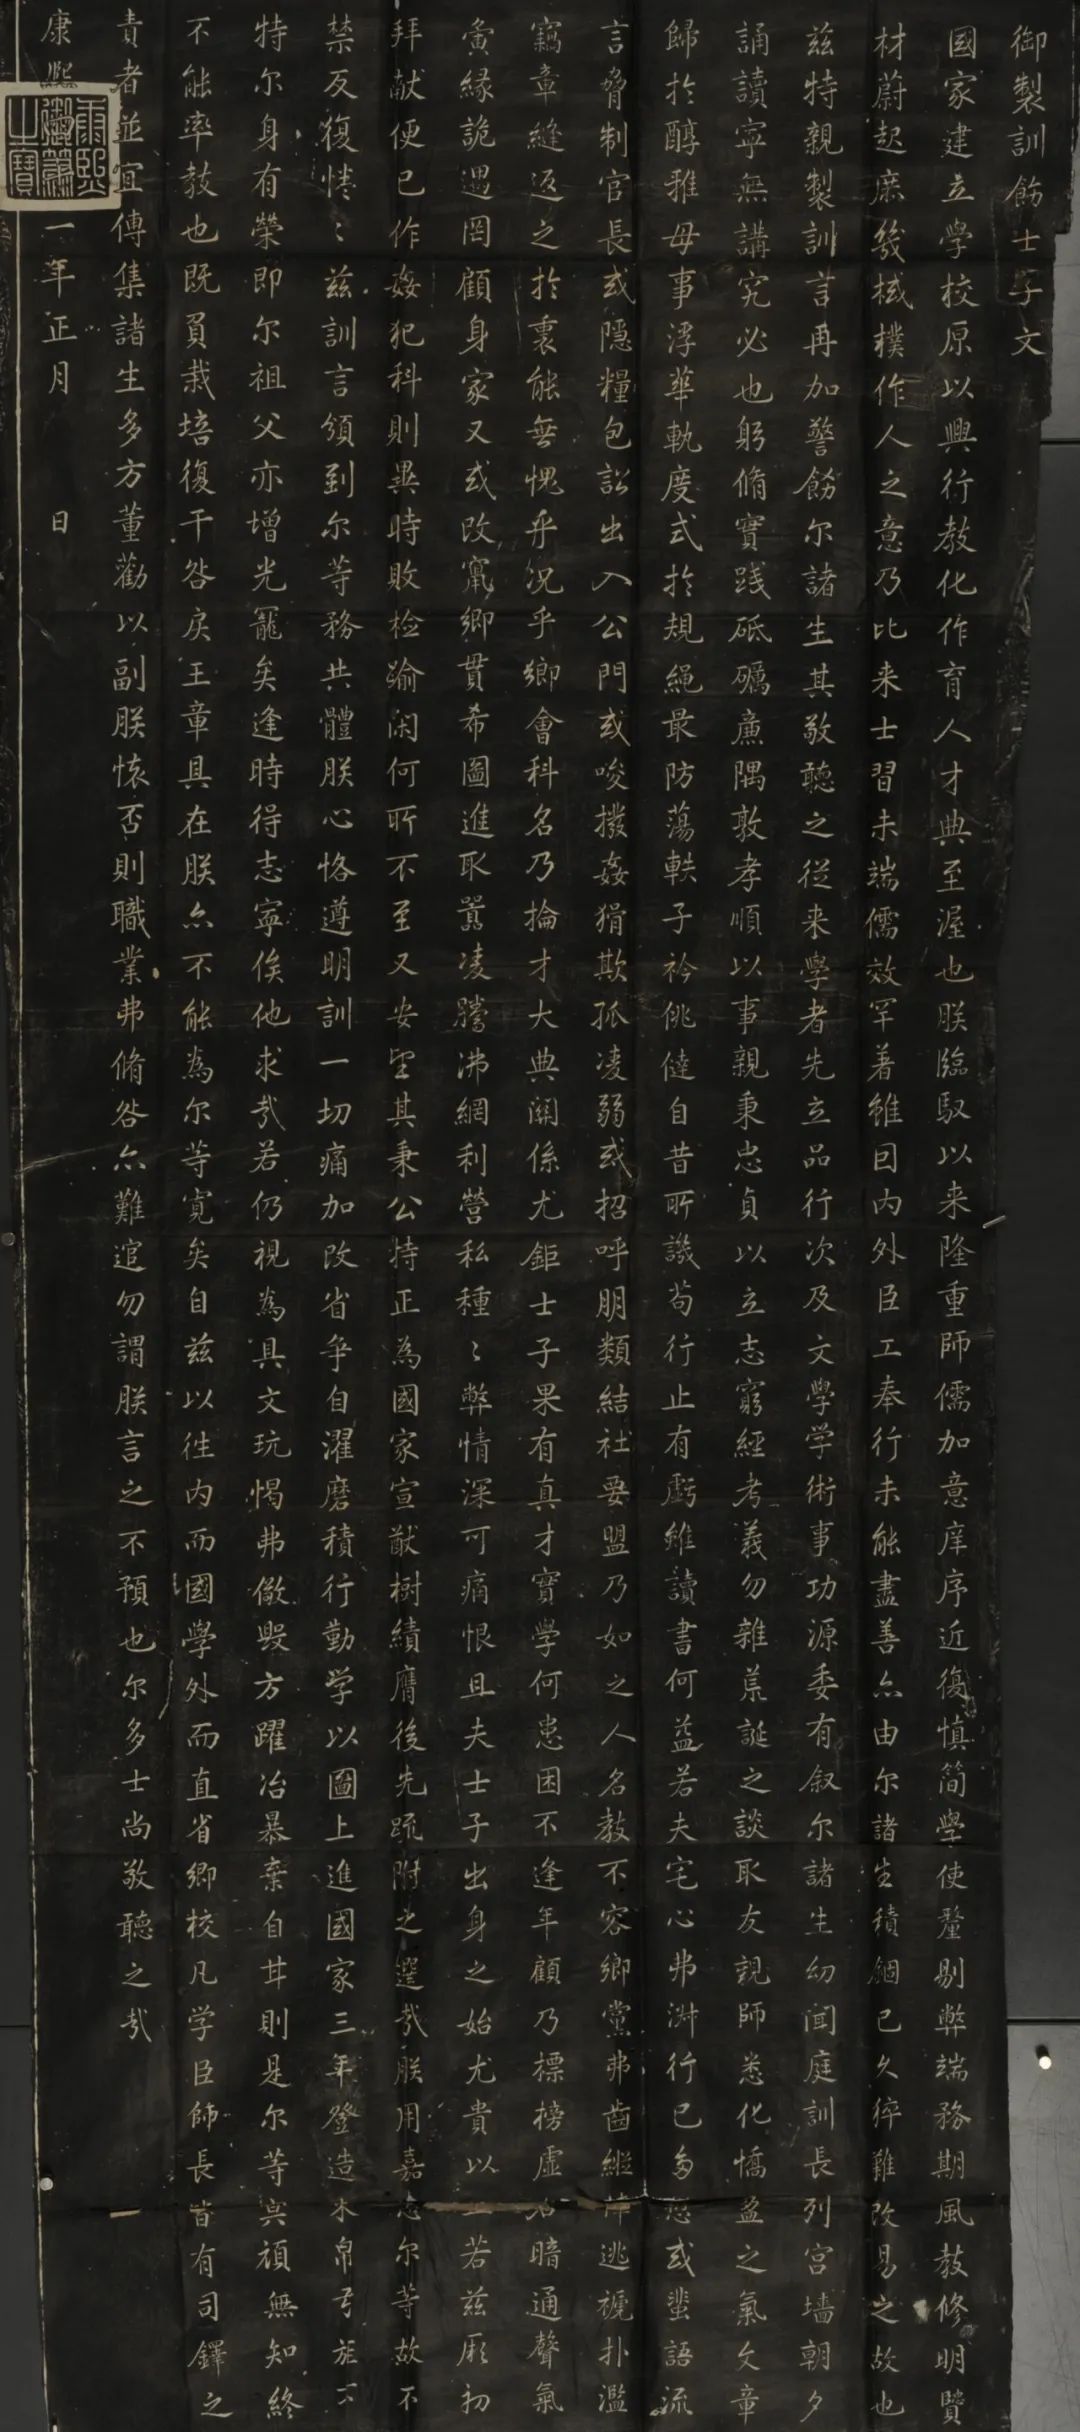 御製訓飭士子文
國家建立學校原以興行教化作育人才典至渥也朕臨馭以来隆重師儒加意庠序近復慎简學使釐剔弊端務期風教修明賢
材蔚起庶幾棫樸作人之意乃比来士習未端儒效罕著雖因内外臣工奉行未能盡善亦由尔諸生積錮已久猝難改易之故也
兹特親製訓言再加警飭尔諸生其敬聽之從来學者先立品行次及文學学術事功源委有叙尔諸生幼聞庭訓長列宫墻朝夕
誦讀寧無講究必也躬脩實践砥礪廉隅敦孝順以事親秉忠貞以立志窮經考義勿雜荒誕之談取友親師悉化憍盈之氣文章
歸扵醇雅毋事浮華軌度式扵規繩最防蕩軼子衿佻㒓自昔所譏苟行止有虧雖讀書何益若夫宅心弗淑行已多愆或蜚語流
言脅制官長或隱糧包訟出入公門或唆撥姦猾欺孤凌弱或招呼朋類結社要盟乃如之人名教不容鄉黨弗齒縦倖逃褫扑濫
竊章縫返之扵衷能無愧乎況乎鄉會科名乃掄才大典關係尤鉅士子果有真才實學何患困不逢年顧乃標榜虛名暗通聲氣
夤緣詭遇罔顧身家又或改竄鄉貫希圖進取囂凌騰沸網利營私種〻弊情深可痛恨且夫士子出身之始尤貴以正若兹厥初
拜献便已作姦犯科則異時敗检踰闲何所不至又安望其秉公持正為國家宣猷樹績膺後先疏附之選㦲朕用嘉惠尔等故不
禁反復惓〻兹訓言頒到尔等務共體朕心恪遵明訓一切痛加改省争自濯磨積行勤学以圖上進國家三年登造束帛弓旌不
特尔身有榮即尔祖父亦增光寵矣逢時得志寧俟他求㦲若仍視為具文玩愒弗儆毁方躍冶暴棄自甘則是尔等冥頑無知終
不能率教也既負栽培復干咎戾王章具在朕亦不能為尔等寛矣自兹以往内而國學外而直省鄉校凡学臣師長皆有司鐸之
責者並宜傳集諸生多方董勸以副朕懷否則職業弗脩咎亦難逭勿謂朕言之不預也尔多士尚敬聽之㦲
康熙一年正月 日
康熙御筆之寶